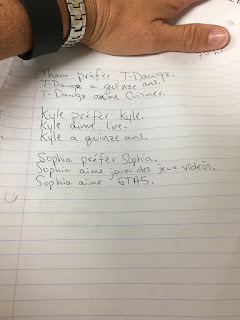 Tham préfèr T-Dawgz.
T-Dawgz a quinze ans.
T-Dawgz aime Cuisner.
Kyle préfèr Kyle.
Kyle aime
Kyle a quinze ans.
Sophia préfèr Sophia.
Sophia aime jouer des jeux vidéos.
Sophia aime GTA5.